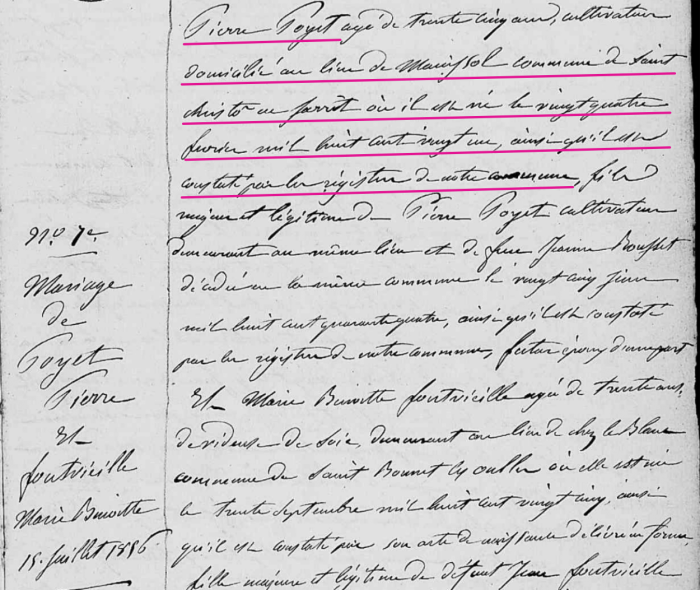 Pierre Poyet agé de trente cinq ans, cultivateur
domicilié au lieu de commune de Saint
où il est né le vingt quatre
fevrier mil huit cent vingt un, ainsi qu'il est
constaté par les régistres de notre commune, fils
majeur et légitime de Pierre Poyet cultivateur
demeurant au même lieu et de feue Jeanne
décédée en la même commune le vingt cinq Juin
mil huit cent quarante quatre, ainsi qu'il est constaté
par les régistres de notre commune, futur époux d'une part
N.º 7e
Mariage
de
Poyet
Pierre
Et
fontvieille
Marie Benoitte
15 Juillet 1856
Et Marie Benoitte fontvieille agée de trente ans,
devideuse de Soie, demeurant au lieu de chez le Blanc
commune de Saint Bonnet les oulles où elle est née
le trente Septembre mil huit cent vingt cinq, ainsi
qu'il est constaté par son acte de naissance délivré en forme,
fille majeure et légitime de défunt Jean fontvieille